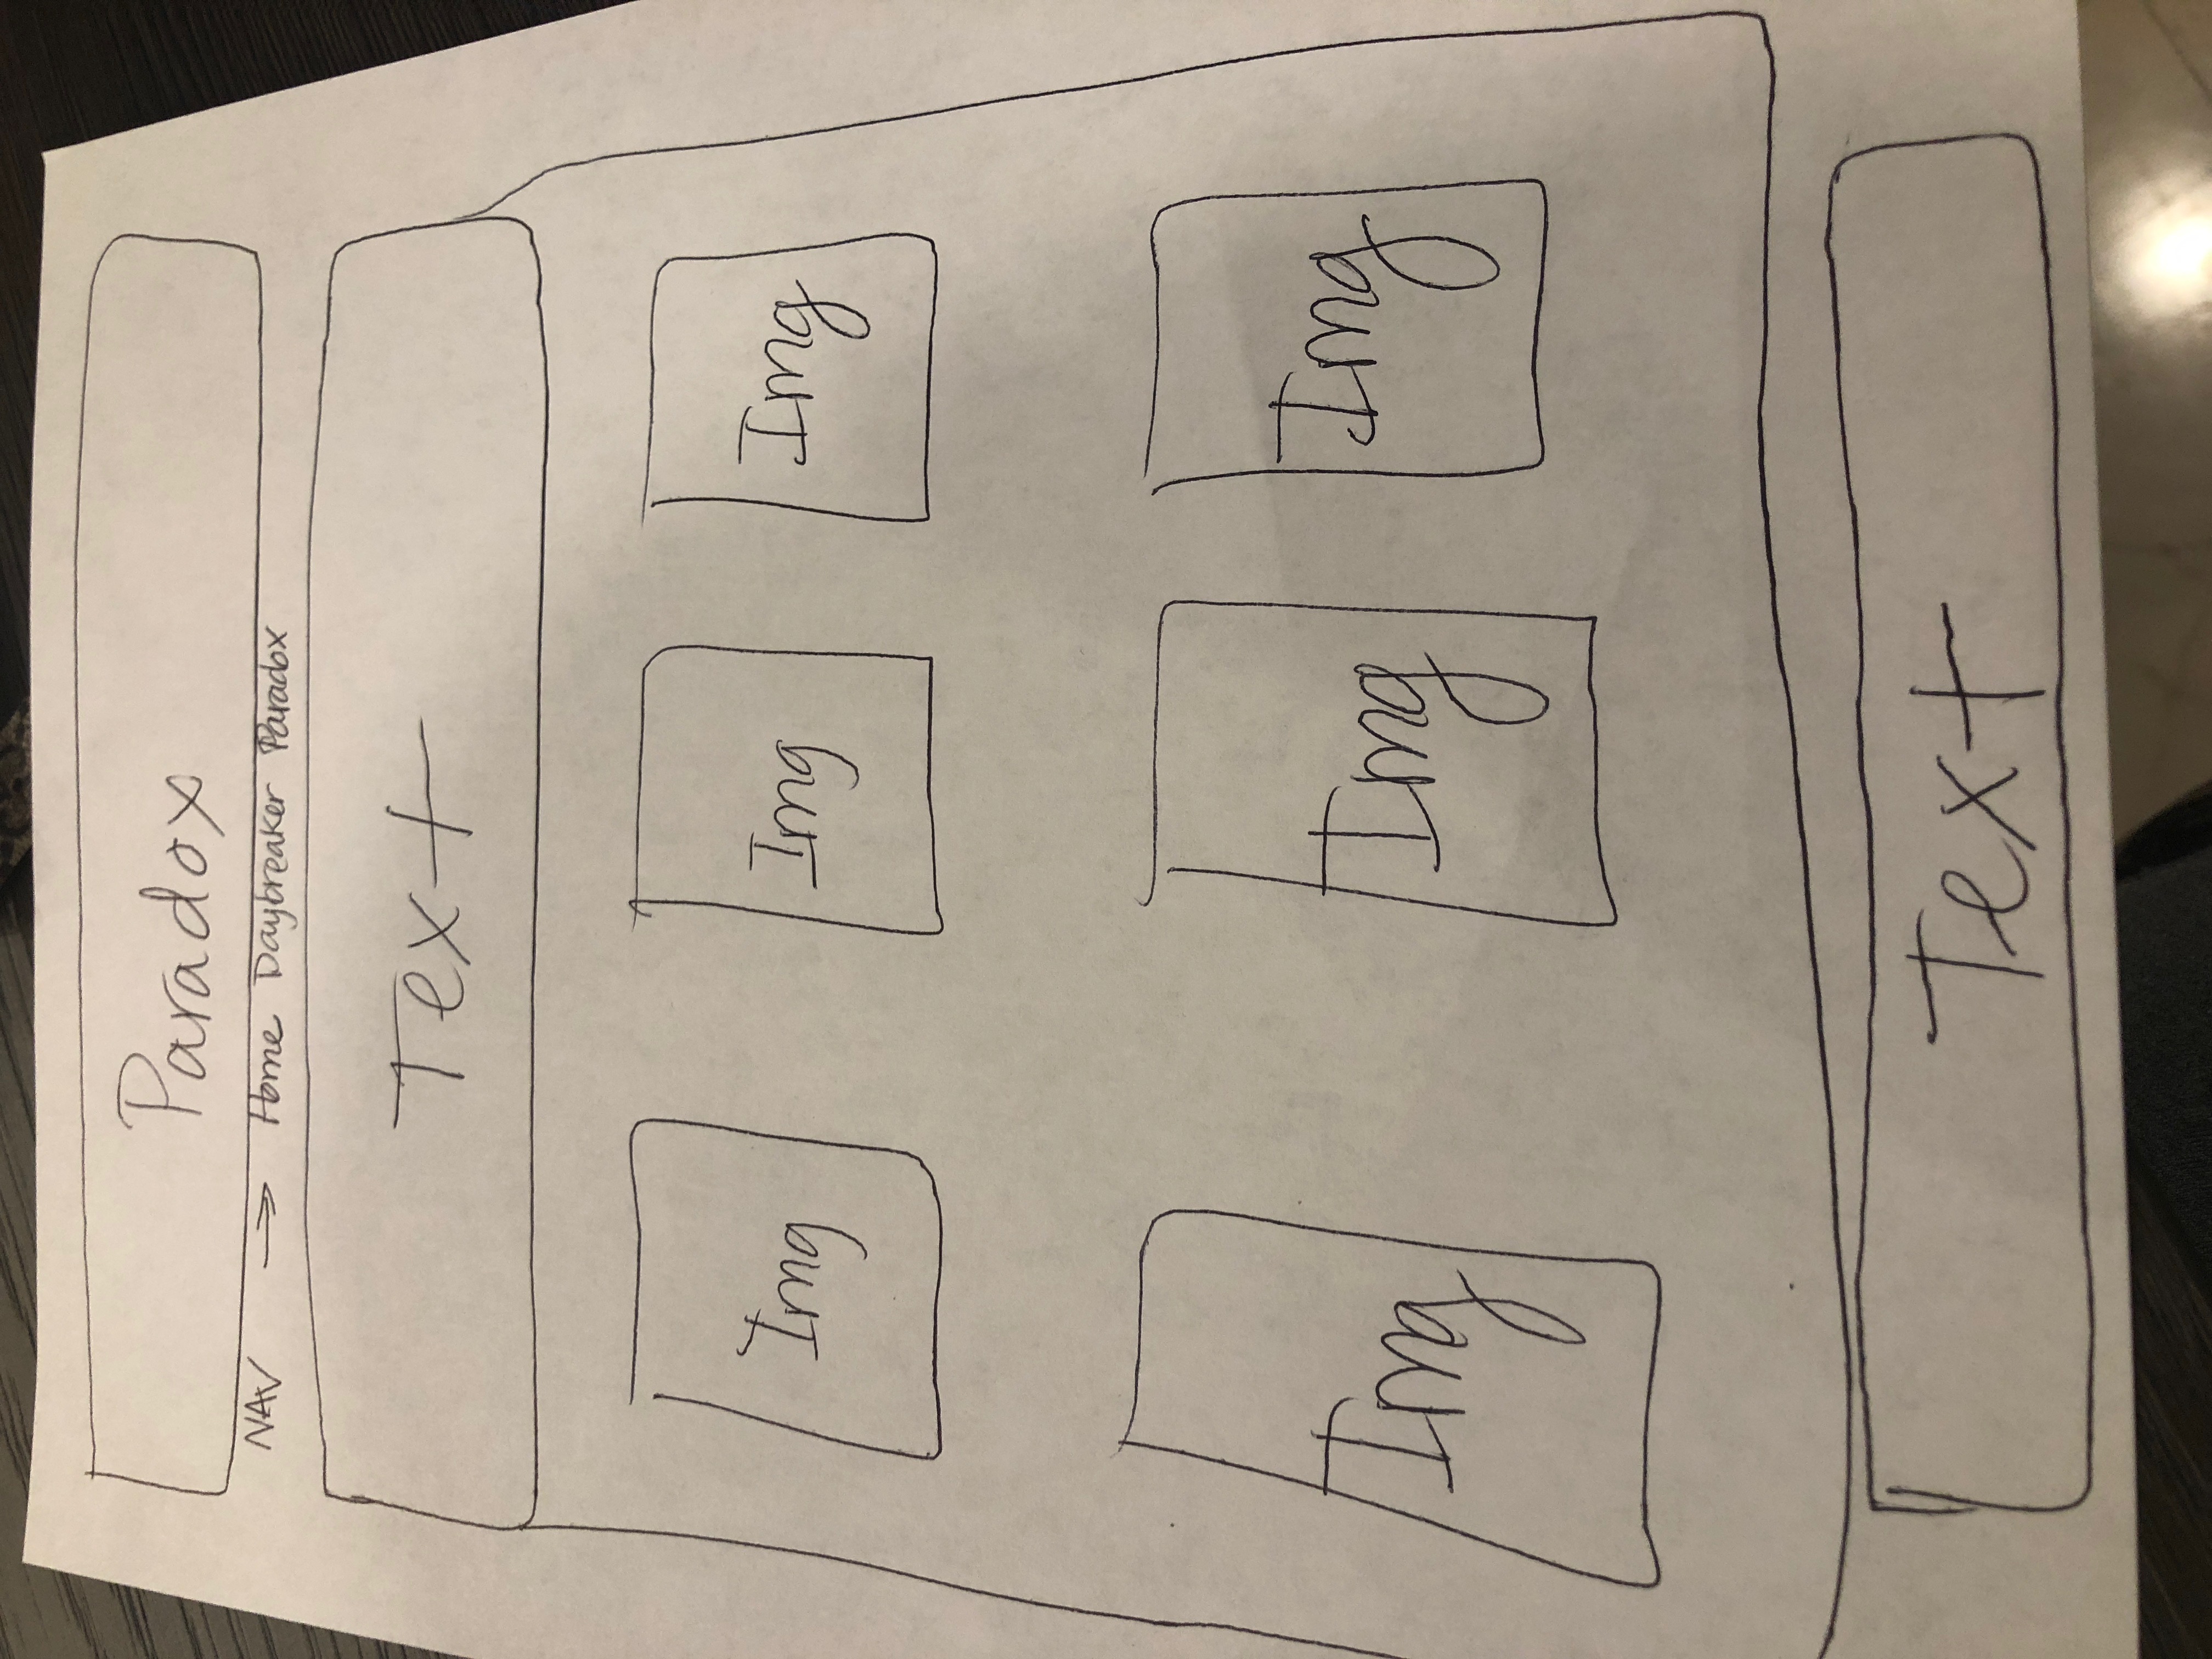 Paradox
NAV → Home Daybreaker Paradox
Text
Img Img Img
Img Img Img
Text